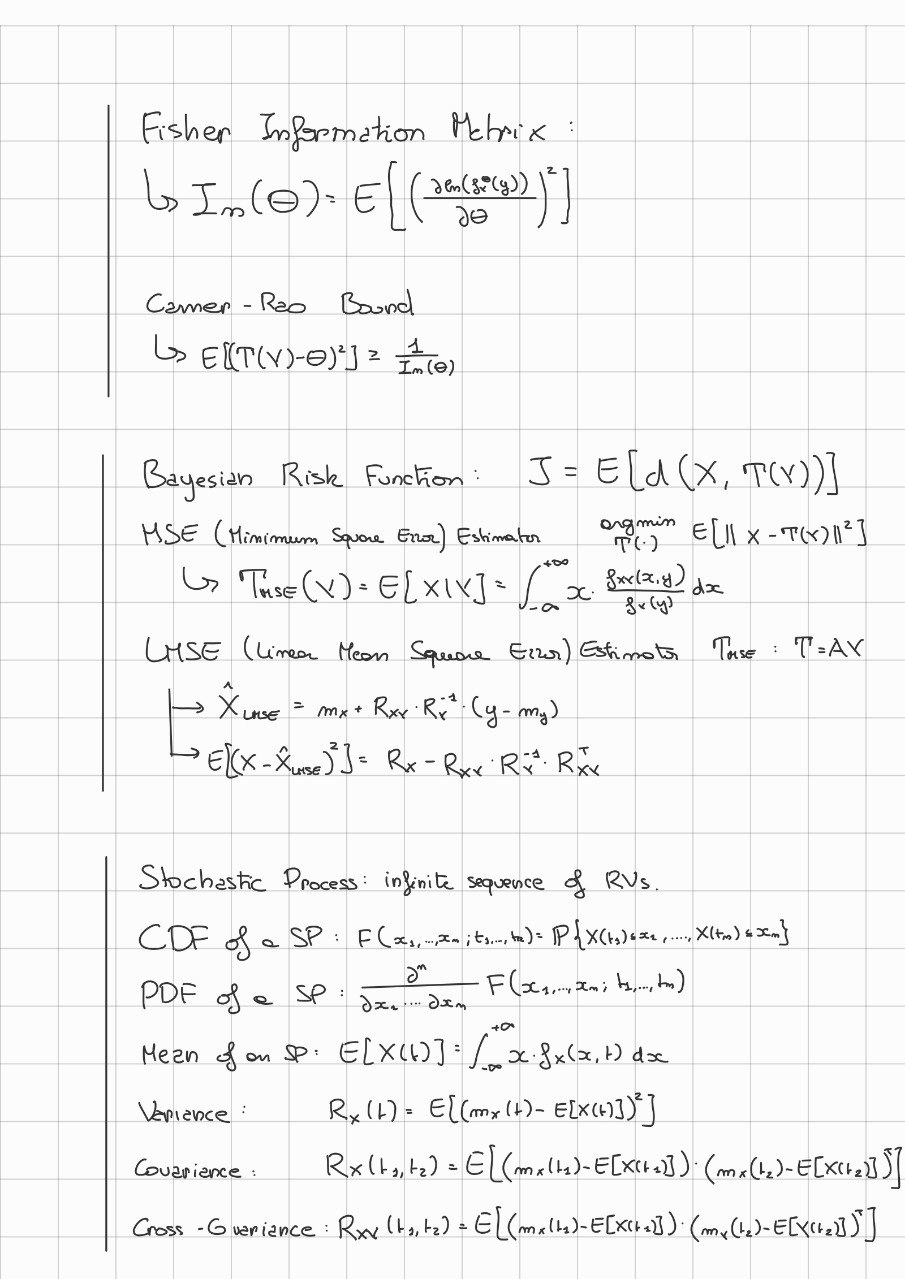 Fisher Information Metrix :
↳ I_n(Θ) = E[(∂ln(f_Y^Θ(y))/∂Θ)²]
Camer-Rao Bound
↳ E[(T(Y)-Θ)²] ≥ 1/I_n(Θ)
Bayesian Risk Function : J = E[d(X, T(Y))]
MSE (Minimum Square Error) Estimator argmin T(·) E[‖X - T(Y)‖²]
↳ T_MSE(Y) = E[X|Y] = ∫_{-∞}^{+∞} x · f_XY(x,y)/f_Y(y) dx
LMSE (Linear Mean Square Error) Estimator T_MSE : T=AY
→ X̂_LMSE = m_x + R_XY · R_Y^{-1} · (y - m_y)
→ E[(X - X̂_LMSE)²] = R_X - R_XY · R_Y^{-1} · R_XY^T
Stochastic Process : infinite sequence of RVs.
CDF of a SP : F(x_1,...,x_n ; t_1,..., t_n) = P{X(t_1) ≤ x_1, ...., X(t_n) ≤ x_n}
PDF of a SP : ∂^n/∂x_1 .... ∂x_n F(x_1,..., x_n ; t_1,..., t_n)
Mean of an SP : E[X(t)] = ∫_{-∞}^{+∞} x · f_X(x,t) dx
Variance : R_X(t) = E[(m_x(t) - E[X(t)])²]
Covariance : R_X(t_1,t_2) = E[(m_x(t_1) - E[X(t_1)]) · (m_x(t_2) - E[X(t_2)])^T]
Cross-Covariance : R_XY(t_1,t_2) = E[(m_x(t_1) - E[X(t_1)]) · (m_y(t_2) - E[Y(t_2)])^T]